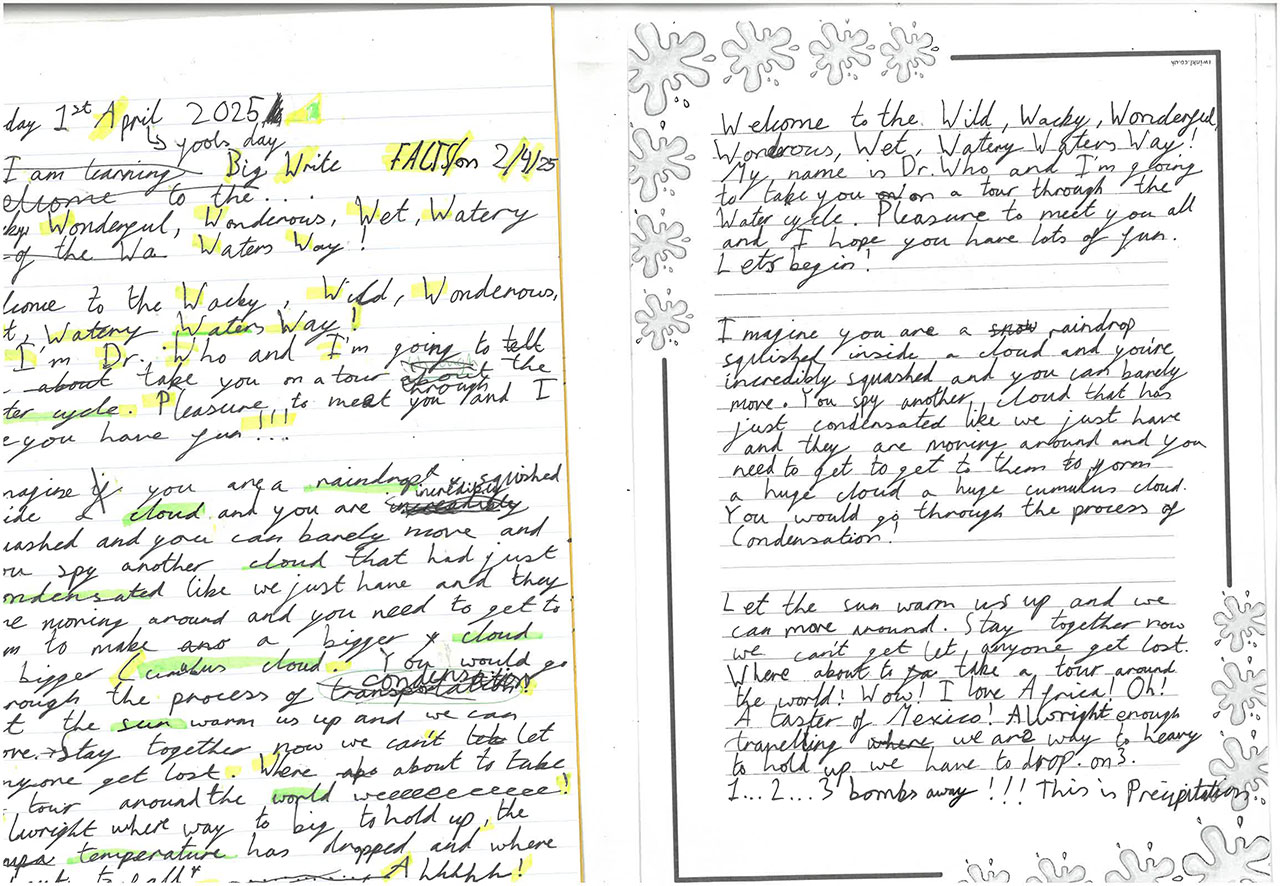 day 1st April 2025
↳ yools day
I am learning Big Write FACTS/on 2/4/25
elcome to the....
ky Wonderful, Wonderous, Wet, Watery
of the Wa Waters Way!
lcome to the Wacky, Wild, Wonderous,
t, Watery Waters Way!
I'm Dr. Who and I'm going to tell
about take you on a tour about through the
ter cycle. Pleasure to meet you and I
e you have fun!!!
magine if you are a raindrop squished
ide a cloud and you are incredibly
uashed and you can barely move and
ou spy another cloud that had just
ondensated like we just have and they
re moving around and you need to get to
m to make ano a bigger cloud
bigger Cumulus cloud. You would go
rough the process of transportation condensation!
t the sun warm us up and we can
ove. Stay together now we can't let let
nyone get lost. Where abo about to take
tour around the world weeeeeeeeeee!
lwright where way to big to hold up, the
temperature has dropped and where
to fall*
Ahhhhh!
twinkl.co.uk
Welcome to the Wild, Wacky, Wonderful,
Wonderous, Wet, Watery Waters Way!
My name is Dr. Who and I'm going
to take you on on a tour through the
Water cycle. Pleasure to meet you all
and I hope you have lots of fun.
Lets begin!
Imagine you are a snow raindrop
squished inside a cloud and you're
incredibly squashed and you can barely
move. You spy another cloud that has
just condensated like we just have
and they are moving around and you
need to get to get to them to form
a huge cloud a huge cumulus cloud.
You would go through the process of
Condensation!
Let the sun warm us up and we
can move around. Stay together now
we can't get let, anyone get lost.
Where about to ta take a tour around
the world! Wow! I love Africa! Oh!
A taster of Mexico! Allwright enough
travelling where we are way to heavy
to hold up we have to drop. on 3.
1... 2... 3 bombs away!!! This is Precipitation